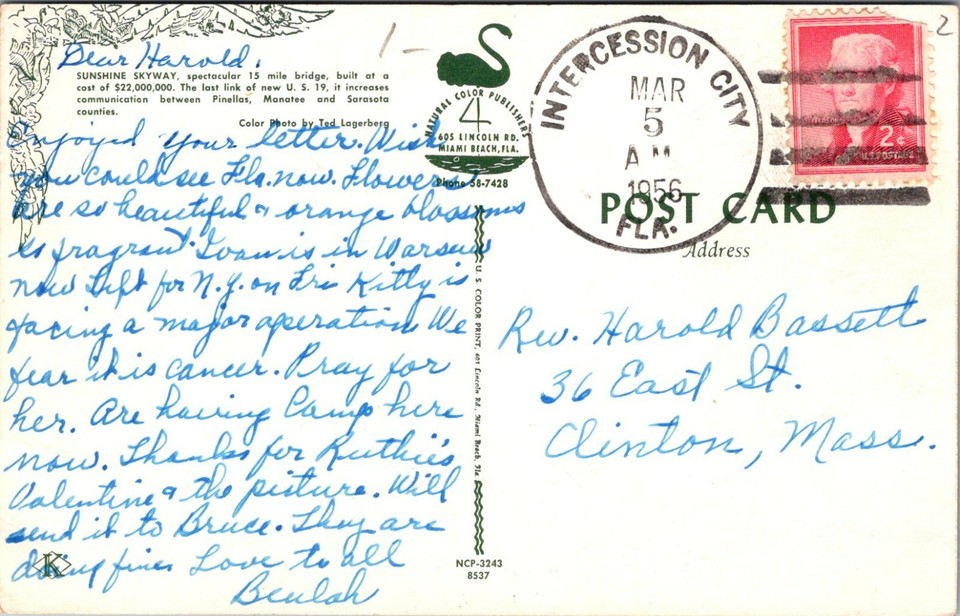 Dear Harold,
SUNSHINE SKYWAY, spectacular 15 mile bridge, built at a
cost of $22,000,000. The last link of new U. S. 19, it increases
communication between Pinellas, Manatee and Sarasota
counties.
Color Photo by Ted Lagerberg
Enjoyed your letter. Wish
you could see Fla. now. Flowers
are so beautiful & orange blossoms
so fragrant. Joan is in Warsaw
now Left for N.Y. on Fri. Kitty is
facing a major operation We
fear it is cancer. Pray for
her. Are having Camp here
now. Thanks for Ruthie's
Valentine & the picture. Will
send it to Bruce. They are
doing fine. Love to all
Beulah
K
1-
NATURAL COLOR PUBLISHERS
4
605 LINCOLN RD.
MIAMI BEACH, FLA.
Phone 58-7428
U. S. COLOR PRINT, 605 Lincoln Rd., Miami Beach, Fla
NCP-3243
8537
INTERCESSION CITY
MAR
5
A M
1956
FLA.
2¢
U.S. POSTAGE
2
POST CARD
Address
Rev. Harold Bassett
36 East St.
Clinton, Mass.